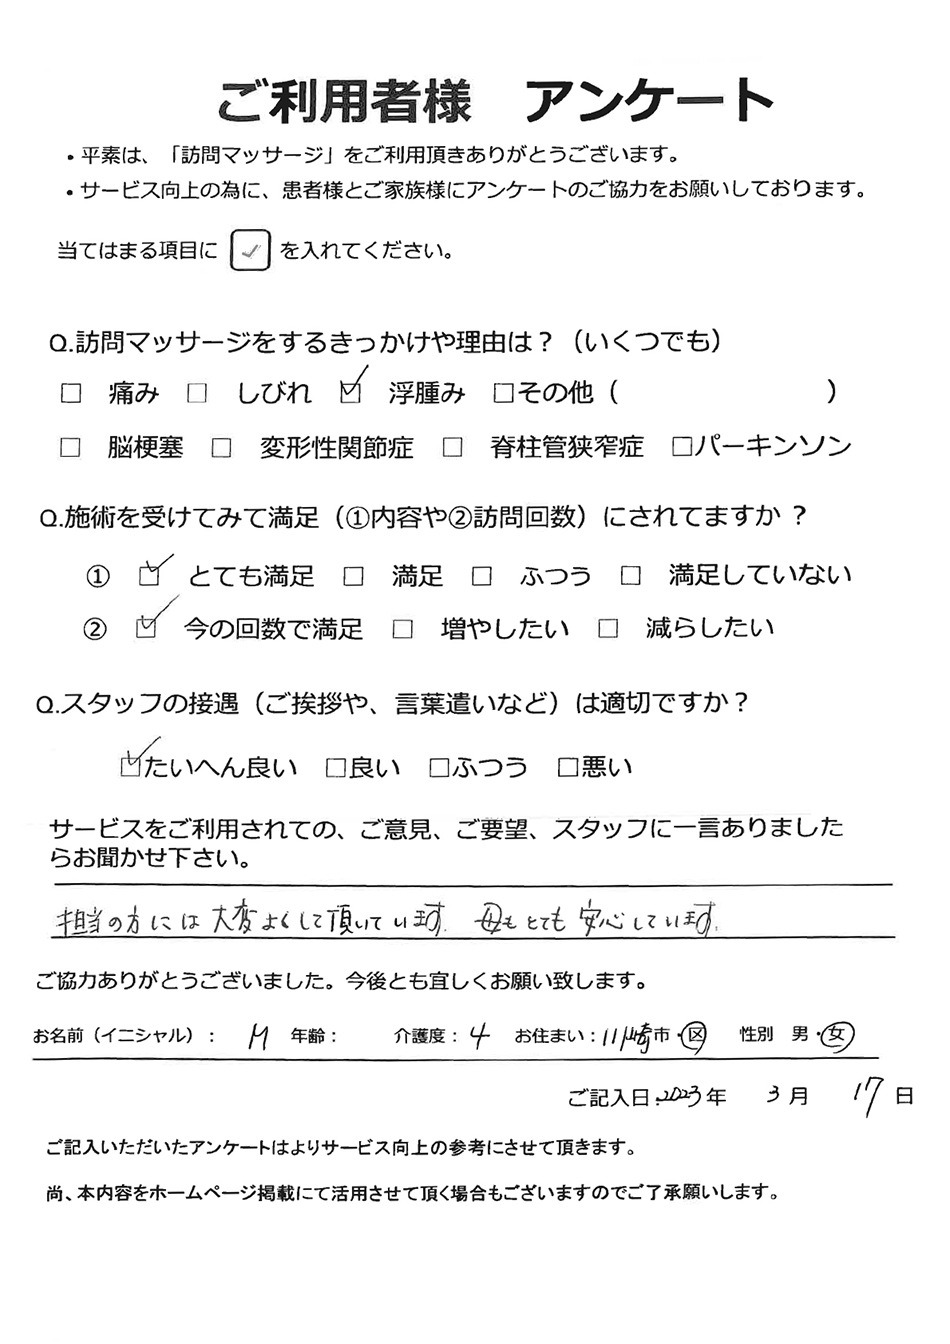 ご利用者様　アンケート
・平素は、「訪問マッサージ」をご利用頂きありがとうございます。
・サービス向上の為に、患者様とご家族様にアンケートのご協力をお願いしております。
当てはまる項目に ☑ を入れてください。
Q.訪問マッサージをするきっかけや理由は？（いくつでも）
□ 痛み □ しびれ ☑ 浮腫み □その他（　　　　　　　　）
□ 脳梗塞 □ 変形性関節症 □ 脊柱管狭窄症 □パーキンソン
Q.施術を受けてみて満足（①内容や②訪問回数）にされてますか？
① ☑ とても満足 □ 満足 □ ふつう □ 満足していない
② ☑ 今の回数で満足 □ 増やしたい □ 減らしたい
Q.スタッフの接遇（ご挨拶や、言葉遣いなど）は適切ですか？
☑たいへん良い □良い □ふつう □悪い
サービスをご利用されての、ご意見、ご要望、スタッフに一言ありました
らお聞かせ下さい。
担当の方には大変よくして頂いています。母もとても安心しています。
ご協力ありがとうございました。今後とも宜しくお願い致します。
お名前（イニシャル）： M 年齢： 介護度：4 お住まい：川崎市・区 性別 男・女
ご記入日：2023年 3月 17日
ご記入いただいたアンケートはよりサービス向上の参考にさせて頂きます。
尚、本内容をホームページ掲載にて活用させて頂く場合もございますのでご了承願いします。